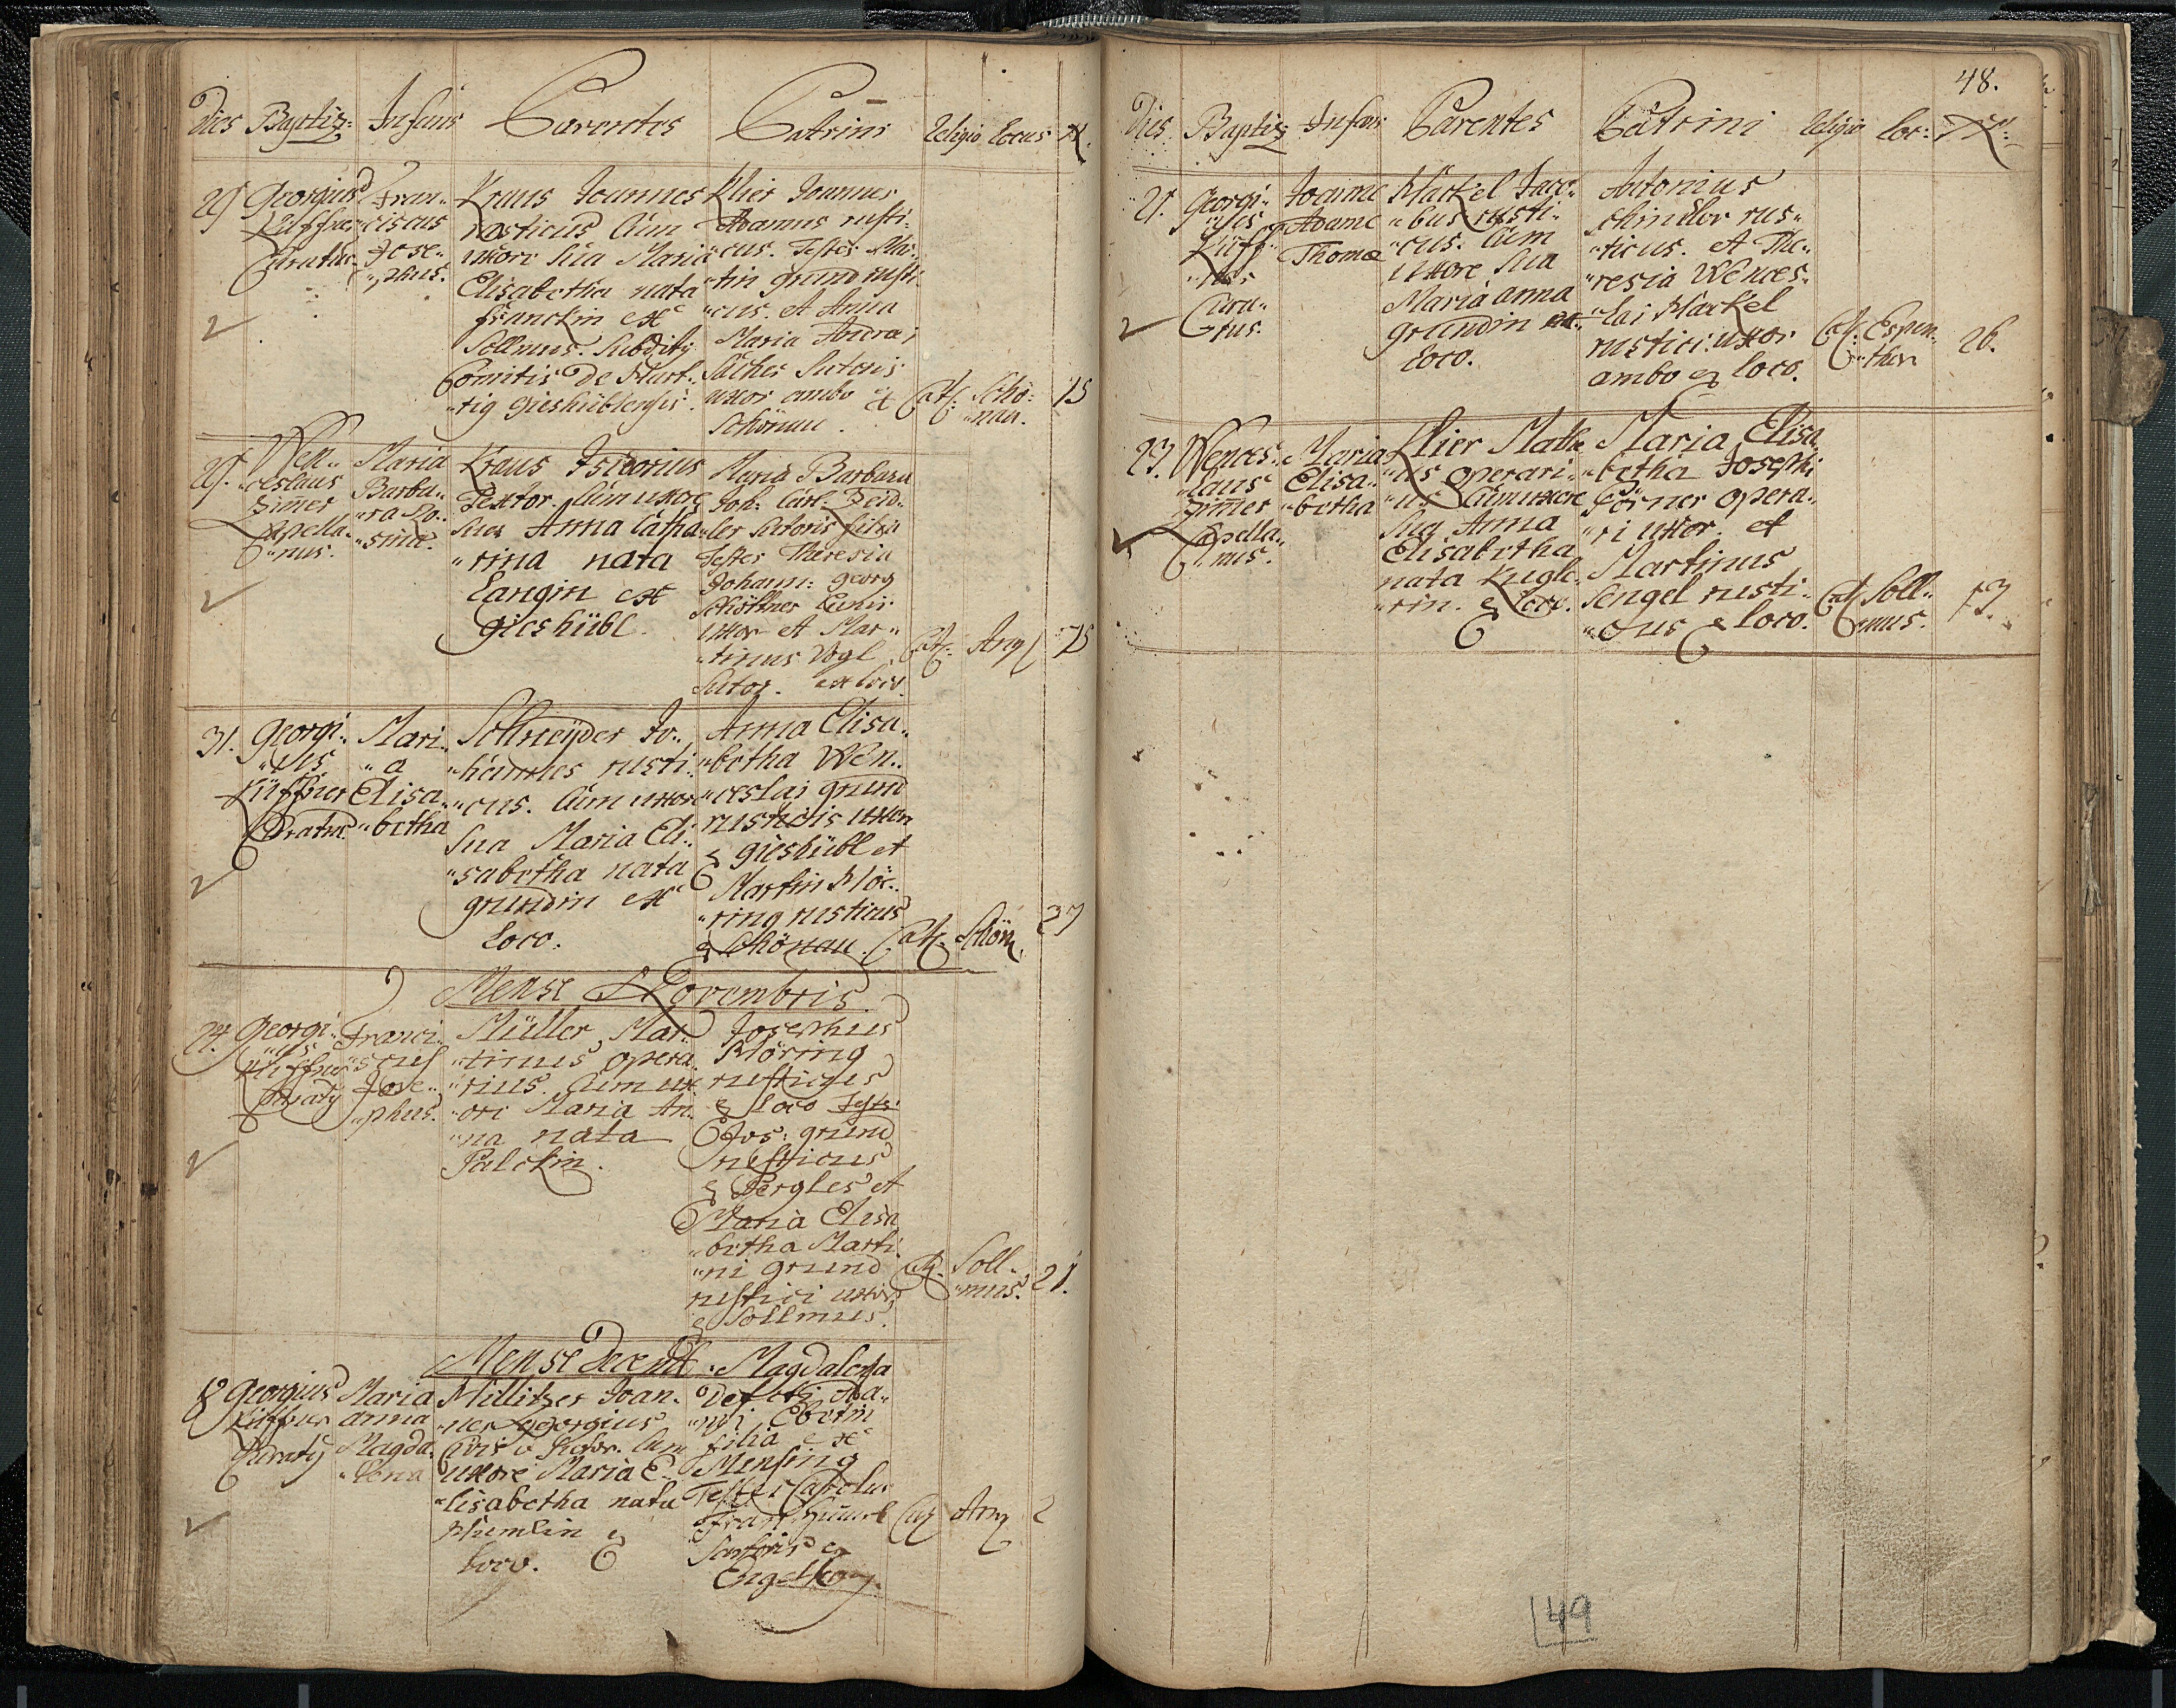 Dies Baptiz: Infans Parentes Patrini Religio Locus N.
29 Georgius Küffner Curatus
Fran„
„ciscus
Jose„
„phus.
Kraus Joannes
rusticus Cum
uxore sua Maria
Elisabetha nata
fränckin ex
Sollmus. Subditg
Comitis De Hart„
„tig Gieshüblensis.
Klier Joannes
Adamus rusti„
„cus. Testes Mar„
„tin Grund rusti„
„cus. et Anna
Maria Andrea
Sutoris
uxor ambo ex
Schönau.
Cath: Schö„
„nau. 15
29. Wen„
„ceslaus
Zimer
Capella„
„nus.
Maria
Barba„
„ra Ro„
„sina.
Kraus Isidorius
Textor. Cum uxore
sua Anna Catha„
„rina nata
Langin ex
Gieshübl.
Maria Barbara
Joh: Carl
Sutoris filia
Testes Theresia
Johann: Georg
uxor et Mar„
„tinus Vogl
Sutor. ex loco.
Cath: Ang 75
31. Georgi„
„us
Küffner
Curatus.
Mari„
„a
Elisa„
„betha
Schneÿder Jo„
„hannes rusti„
„cus. Cum uxore
sua Maria Eli„
„sabetha nata
grundin ex
Loco.
Anna Elisa„
„betha Wen„
„ceslai grund
rustici uxor
e Gieshübl et
Martin Mö„
„ring rusticus
e Schönau.
Cath: Schön. 27
Mense Novembris
24. Georgi„
„us
Küffner
Curatg
Franci„
„scus
Jose„
„phus.
Müller Mar„
„tinus opera„
„rius. Cum ux„
„ori Maria An„
„na nata
Palckin.
Josephus
Möring
rusticus
e Loco Testes:
Jos: grund
rusticus
e Pergles et
Maria Elisa„
„betha Marti„
„ni grund
rustici uxor
e Sollmus.
Cath: Soll„
„mus. 21.
Mense Decemb
8 Georgius
Küffner
Curatg
Maria
anna
Magda„
„lena
Millitzer Joan„
„nes georgius
Civis et Sutor. Cum
uxore Maria E„
„lisabetha nata
e
loco.
Magdalena
Defuncti
filia ex
Testes Carolus
Fran:
Sartoris e
Cath Ang 2
48.
Dies Baptiz Infans Parentes Patrini Religio Loc: N:
21. Georgi„
„us
Küff„
„ner
Cura„
„tus.
Joanne
Adame
Thoma
Hackel Jaco„
„bus rusti„
„cus. Cum
uxore sua
Maria anna
grundin ex
Loco.
Antonius
Schindler rus„
„ticus. et The„
„resia Wences„
„lai Hackel
rustici uxor
ambo e loco.
Cath: Espen„
„thor 26.
23. Wences„
„laus
Zimer
Capella„
„nus.
Maria
Elisa„
„betha
Klier Mathe
„us operari„
„us Cum uxore
sua Anna
Elisabetha
nata Kugle„
„rin. e Loco.
Maria Elisa
„betha Josephi
Törner opera„
„ri uxor. et
Martinus
Sengel rusti„
„cus e loco.
Cath Soll„
„mus. 13.
49